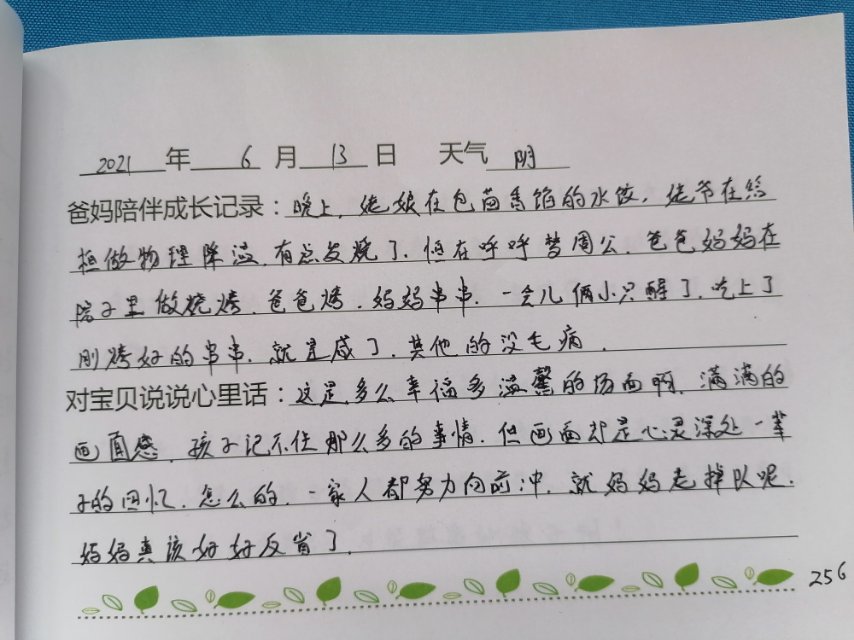 2021年 6 月 13 日 天气 阴
爸妈陪伴成长记录：晚上，姥娘在包茴香馅的水饺，姥爷在给
桓做物理降温，有点发烧了，恒在呼呼梦周公，爸爸妈妈在
院子里做烧烤，爸爸烤，妈妈串串，一会儿俩小只醒了，吃上了
刚烤好的串串，就是咸了，其他的没毛病.
对宝贝说说心里话：这是多么幸福多温馨的场面啊，满满的
画面感，孩子记不住那么多的事情，但画面却是心灵深处一辈
子的回忆，怎么的，一家人都努力向前冲，就妈妈走掉队呢，
妈妈真该好好反省了.
256